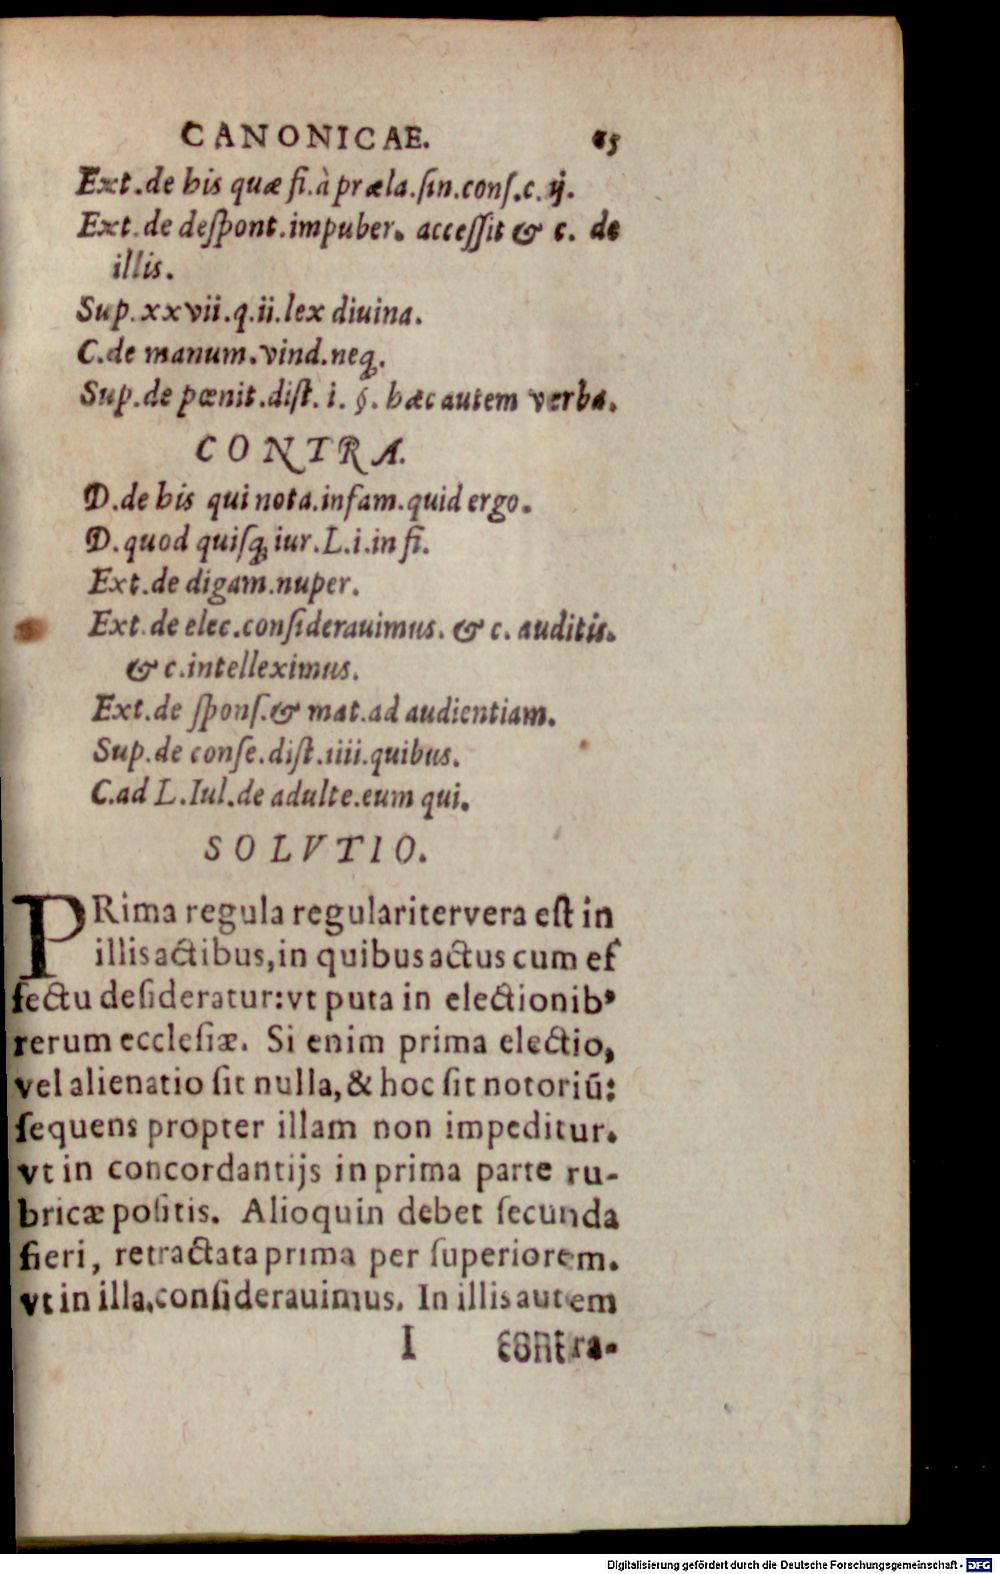 CANONICAE. 65
Ext.de his quæ fi.à præla.ſin.conſ.c.ij.
Ext.de deſpont.impuber. acceſſit & c. de
illis.
Sup.xxvii.q.ii.lex diuina.
C.de manum.vind.neq;.
Sup.de pœnit.diſt. i. §. hæc autem verba.
CONTRA.
D.de his qui nota.infam.quid ergo.
D.quod quiſq; iur.L.i.in fi.
Ext.de digam.nuper.
Ext.de elec.conſiderauimus. & c. auditis.
& c.intelleximus.
Ext.de ſponſ.& mat.ad audientiam.
Sup.de conſe.diſt.iiii.quibus.
C.ad L.Iul.de adulte.eum qui.
SOLVTIO.
PRima regula regularitervera eſt in
illis actibus,in quibus actus cum ef
fectu deſideratur:vt puta in electionibꝰ
rerum eccleſiæ. Si enim prima electio,
vel alienatio ſit nulla,& hoc ſit notoriũ:
ſequens propter illam non impeditur.
vt in concordantijs in prima parte ru-
bricæ poſitis. Alioquin debet ſecunda
fieri, retractata prima per ſuperiorem.
vt in illa.conſiderauimus. In illis autem
I contra-
Digitalisierung gefördert durch die Deutsche Forschungsgemeinschaft - DFG